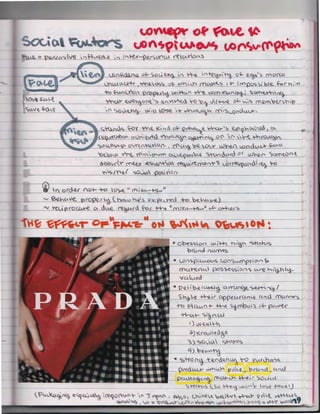 Social Factors
concept of Face &
conspicuous consumption
Face = pervasive influence in inter-personal relations
lien
Face
Confidence of society in the integrity of ego's moral
character, the loss of which makes it impossible for him
to function properly within the community. Something
that everyone's entitled to by virtue of his membership
in society, will lose it through misconduct.
Love face
Save face
mien-
tsu
Stands for the kind of prestige that's emphasized, a
reputation achieved through getting on in life through
success & ostentation. May be lost when conduct
below the minimum acceptable standard or when someone
doesn't meet essential requirements corresponding to
his/her social position
In order not to lose "mien-tsu"
~ Behave properly (how he's expected to behave)
~ reciprocate a due regard for the "mien-tsu" of others
THE EFFECT OF "FACE" ON BUYING DECISION:
• obsession with high status
brand names
• conspicuous consumption &
material possessions are highly-
valued
• Deliberately arrange setting/
style their appearance and manners
to flaunt the symbols of power
that signal
1) wealth
2) knowledge
3) social status
4) beauty
• strong tendency to purchase
product which price, brand, and
packaging match their social
status (so they won't lose face!)
PRADA
(Packaging especially important in Japan. Also, Chinese believe that price reflects